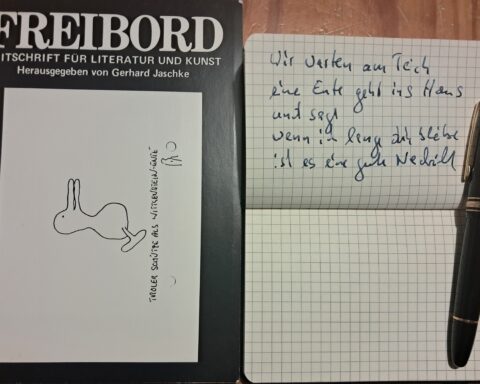 FREIBORD
ITSCHRIFT FÜR LITERATUR UND KUNST
Herausgegeben von Gerhard Jaschke
TIROLER SCHÜTZE ALS WITTGENSTEIN-ENTE
Wir warten am Teich
eine Ente geht ins Haus
und sagt
wenn ich lang
ist es eine gute